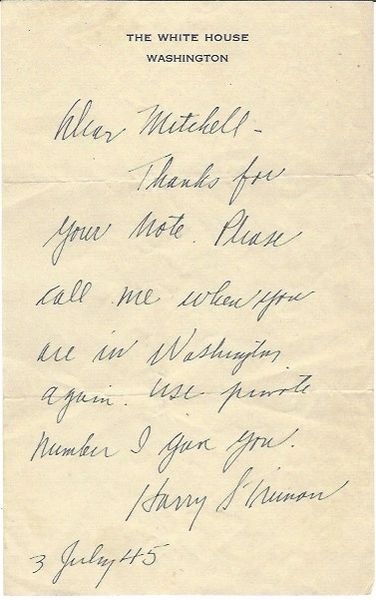 THE WHITE HOUSE
WASHINGTON
Dear Mitchell -
Thanks for
your note. Please
call me when you
are in Washington
again. Use private
number I gave you.
Harry S Truman
3 July 45